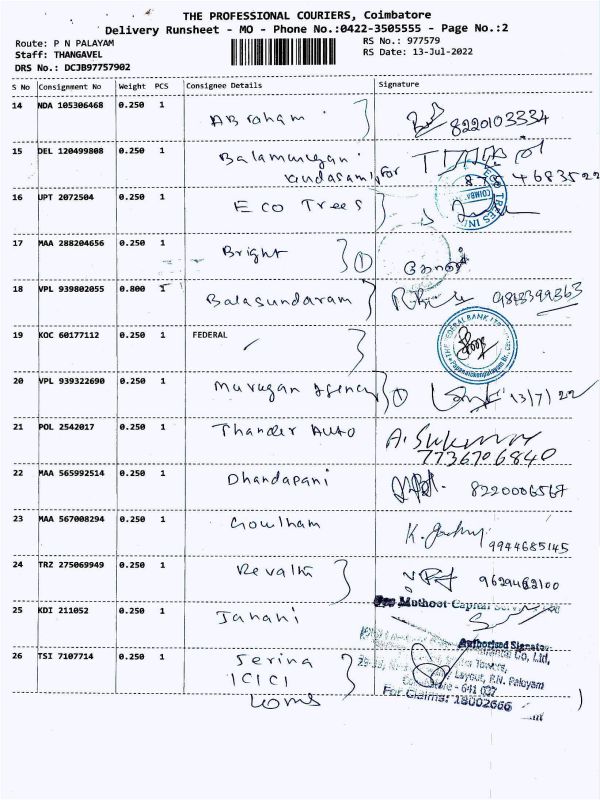 THE PROFESSIONAL COURIERS, Coimbatore
Delivery Runsheet - MO - Phone No.:0422-3505555 - Page No.:2
Route: P N PALAYAM
Staff: THANGAVEL
DRS No.: DCJB97757902
RS No.: 977579
RS Date: 13-Jul-2022
S No Consignment No Weight PCS Consignee Details Signature
14 NDA 105306468 0.250 1 Abraham 8220103334
15 DEL 120499808 0.250 1 Balamurugan
Kandasami for
16 JPT 2072504 0.250 1 Eco Trees
17 MAA 288204656 0.250 1 Bright 1
18 VPL 939802055 0.800 1 Balasundaram
19 KOC 60177112 0.250 1 FEDERAL
THE FEDERAL BANK LTD
20 VPL 939322690 0.250 1 Murugan Agency 1 13/7/22
21 POL 2542017 0.250 1 Thander Auto A. Sukumar
7736706840
22 MAA 565992514 0.250 1 Dhandapani 8220006567
23 MAA 567008294 0.250 1 Goutham
9944685145
24 TRZ 275069949 0.250 1 Revathi 9629462100
25 KDI 211052 0.250 1 Janani
For Muthoot Capital
Authorised Signatory
26 TSI 7107714 0.250 1 Serina
ICICI
Co, Ltd,
Towers,
Layout, P.N. Palayam
Coimbatore - 641 037
For Claims: 18002666